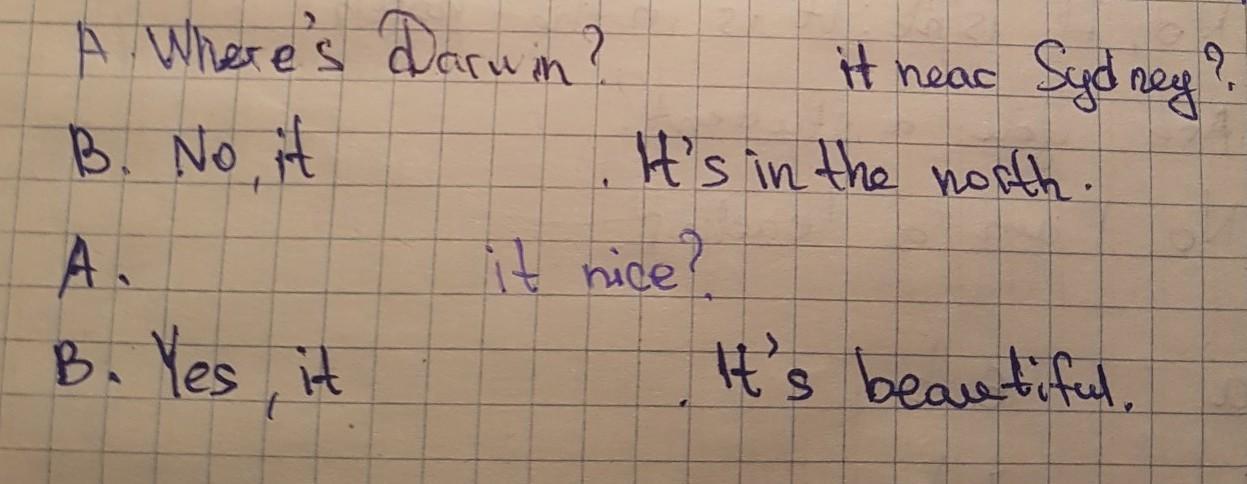 A. Where's Darwin? it near Sydney?.
B. No, it . It's in the north.
A. it nice?.
B. Yes, it . It's beautiful.